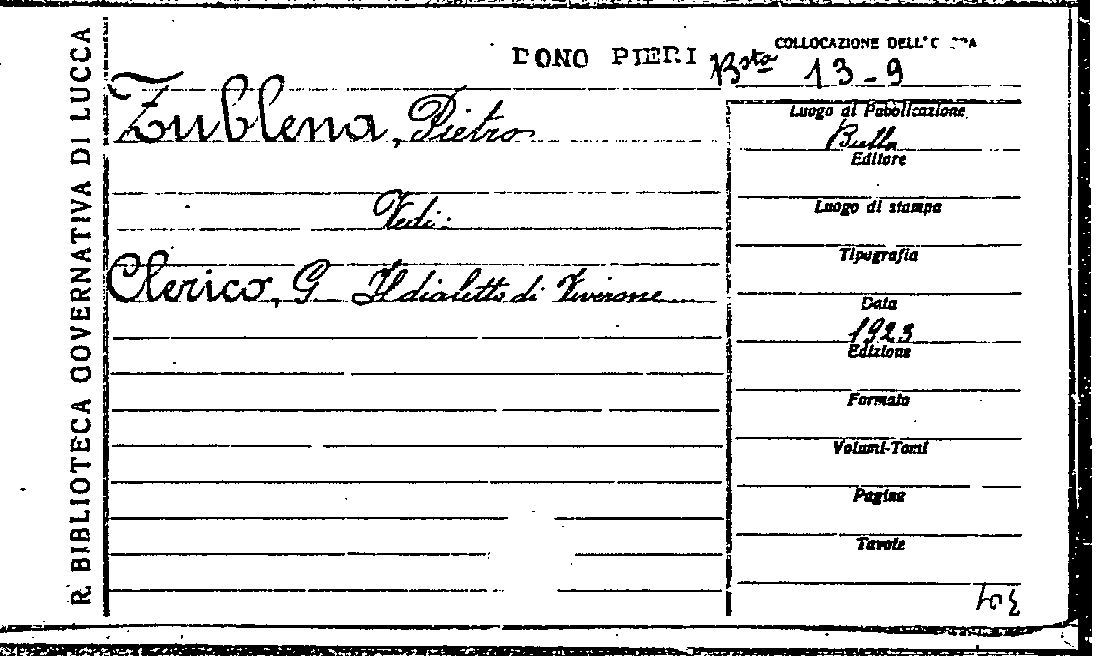 R. BIBLIOTECA GOVERNATIVA DI LUCCA
DONO PIERI
Zublena, Pietro
Vedi:
Clerico, G Il dialetto di Viverone
COLLOCAZIONE DELL'
Bsta 13-9
Luogo di Pubblicazione
Editore
Luogo di stampa
Tipografia
Data
1923
Edizione
Formato
Volumi-Tomi
Pagine
Tavole